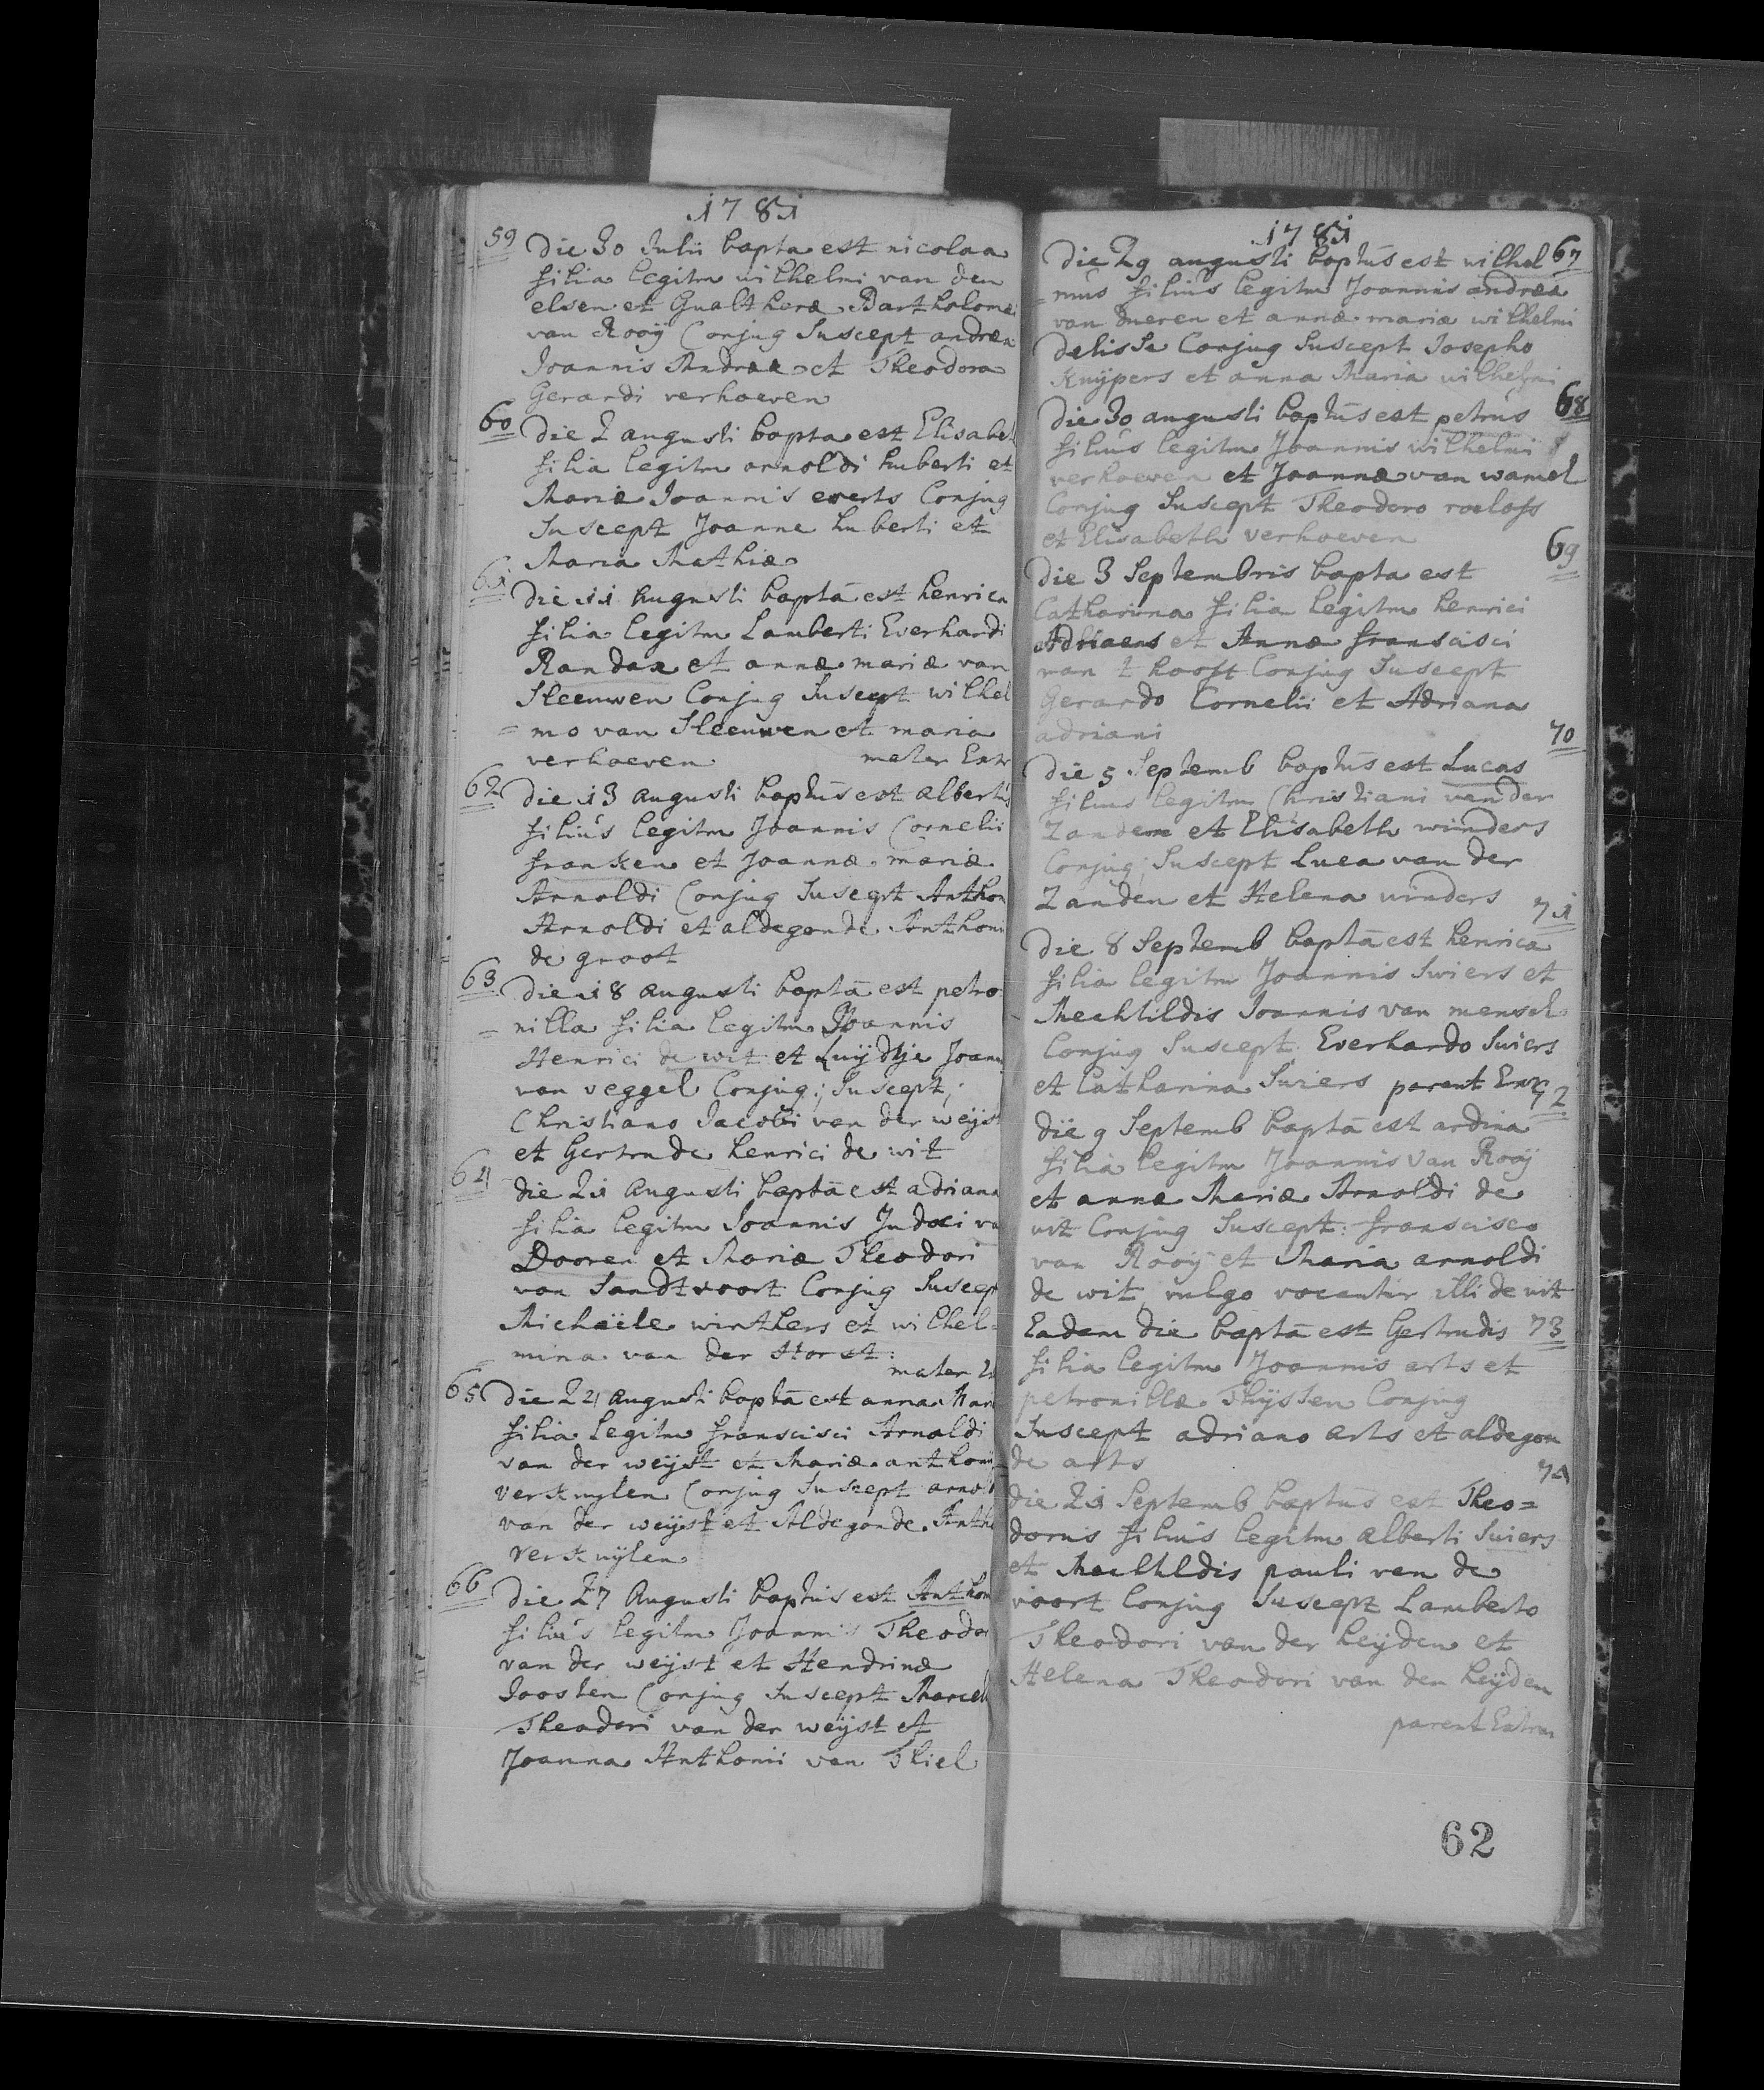 1781
59 Die 30 Julii bapta est nicolaa
filia legitm wilhelmi van den
elsen et Gualtheræ Bartholomei
van Rooÿ Conjug Suscept andrea
Joannis Andreæ et Theodora
Gerardi verhoeven
60 Die 2 augusti bapta est Elisabet
filia legitm arnoldi huberti et
Mariæ Joannis everts Conjug
Suscept Joanne huberti et
Maria Mathiæ
61 Die 11 Augusti baptā est henrica
filia legitm Lamberti Everhardi
Randax et annæ mariæ van
Steenwen Conjug Suscept wilhel
= mo van Steenwen et maria
verhoeven mater Extr
62 Die 13 augusti baptus est albertus
filius legitm Joannis Cornelii
franken et Joannæ mariæ
Arnoldi Conjug Suscept Anthon
Arnoldi et aldegonde Anthoni
de groot
63 Die 18 augusti baptā est petro
= nilla filia legitm Joannis
Henrici de wit et Luÿdtje Joann
van veggel Conjug; Suscept;
Christiano Jacobi van der weÿst
et Gertrude henrici de wit
64 die 21 augusti baptā est adriana
filia legitm Joannis Judoci va
Dooren et Mariæ Theodori
van Sandtvoort Conjug Suscep
Michaële winthers et wilhel=
= mina van der Horst:
mater
65 die 24 augusti baptā est anna Mari
filia legitm franscisci Arnoldi
van der weÿst et Mariæ anthonÿ
verkuylen Conjug Suscept arnol
van der weÿst et Aldegonde Antho
verkuÿlen
66 Die 27 Augusti baptus est Anthon
filius legitm Joannis Theodor
van der weÿst et Hendrinæ
Joosten Conjug Suscept Marcel
Theodori van der weÿst et
Joanna Anthonii van Thiel
1781
Die 29 augusti baptus est wilhel 67
= mus filius legitm Joannis andreæ
van dueren et annæ mariæ wilhelmi
delisse Conjug Suscept Josepho
Kuÿpers et anna Maria wilhelmi
die 30 augusti baptus est petrus 68
filius legitm Joannis wilhelmi
verhoeven et Joannæ van wamel
Conjug Suscept Theodoro roeloss
et Elisabeth verhoeven
69
die 3 Septembris bapta est
Catharina filia legitm henrici
Adriaens et Annæ franscisci
van t hooft Conjug Suscept
Gerardo Cornelii et Adriana
adriani 70
die 5 Septemb baptus est Lucas
filius legitm Christiani van der
Zanden et Elisabeth winders
Conjug; Suscept Luca van der
Zanden et Helena winders 71
Die 8 Septemb baptā est henrica
filia legitm Joannis Swiers et
Mechtildis Joannis van mensel
Conjug Suscept: Everhardo Swiers
et Catharina Swiers parent Extr 72
die 9 Septemb baptā est ardina
filia legitm Joannis Van Rooÿ
et annæ Mariæ Arnoldi de
wit Conjug Suscept: franscisco
van Rooÿ et Maria arnoldi
de wit, vulgo vocantur illi de wit
Eadem die baptā est Gertrudis 73
filia legitm Joannis arts et
petronillæ Thÿssen Conjug
Suscept adriano arts et aldegon
de arts 74
die 21 Septemb baptus est Theo=
dorus filius legitm alberti Swiers
et Mechtldis pauli van de
voort Conjug Suscept Lamberto
Theodori van der heÿden et
Helena Theodori van den heÿden
parent Extran
62